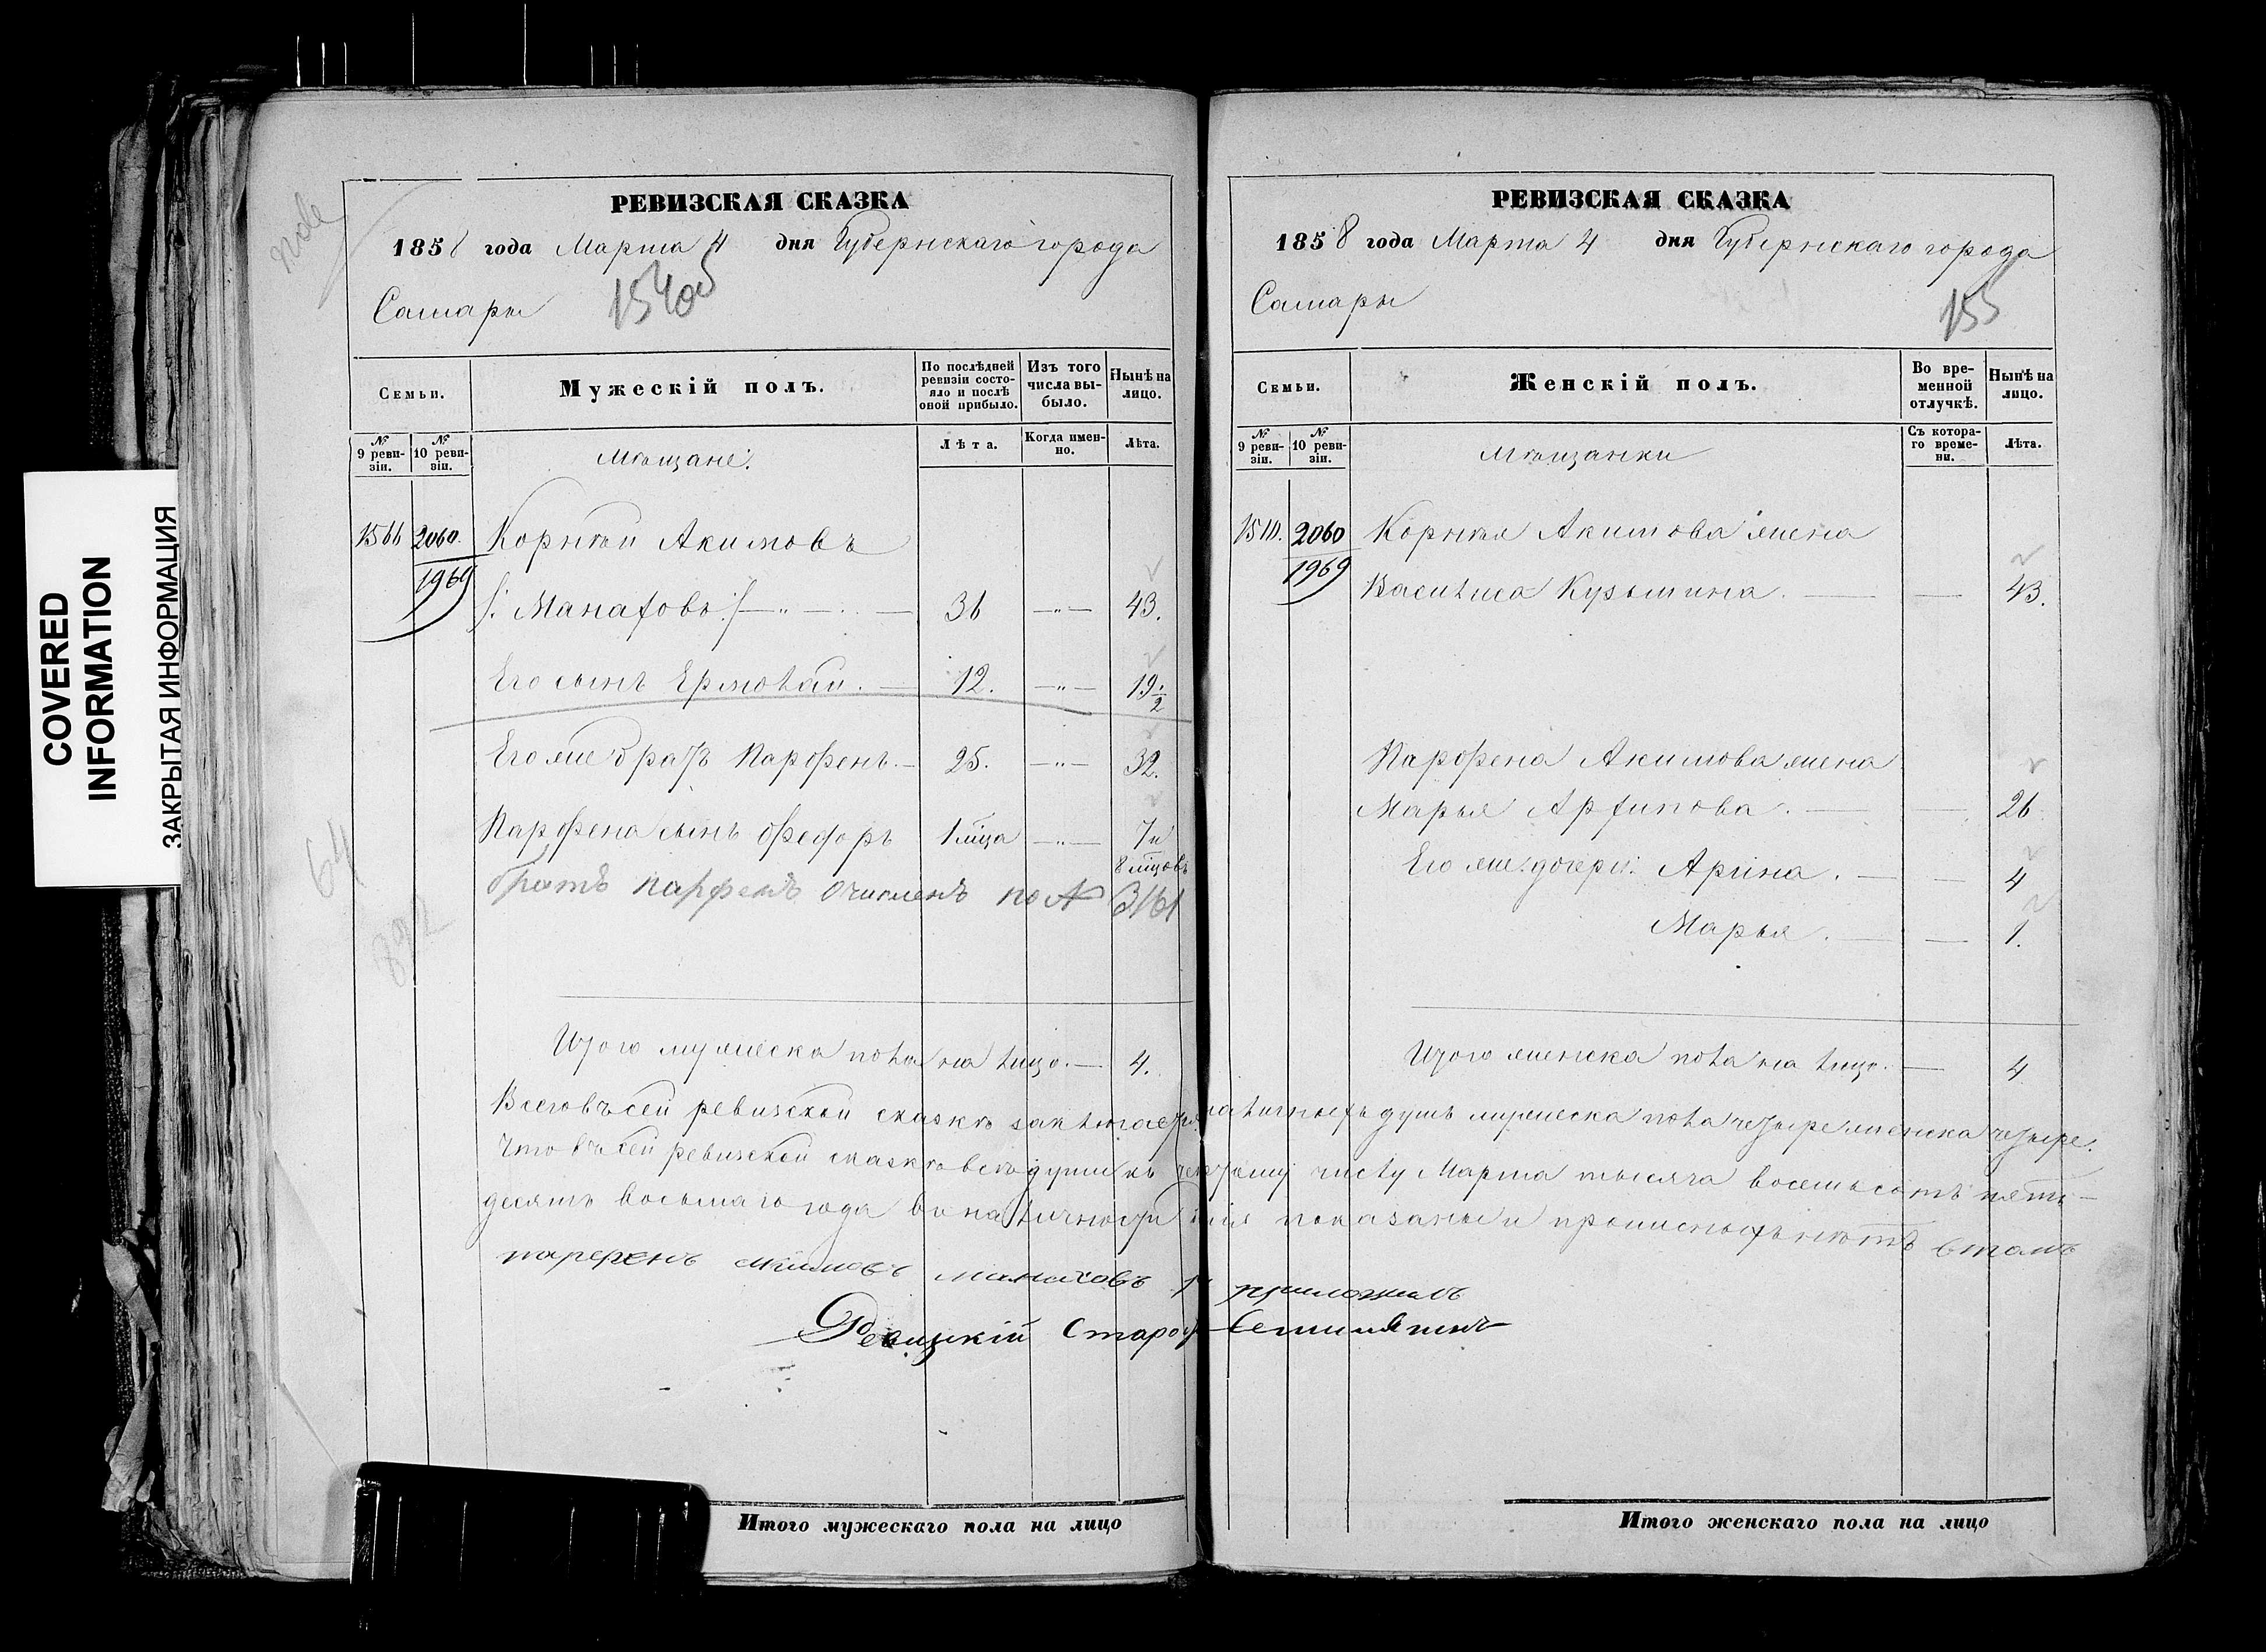 COVERED
INFORMATION
ЗАКРЫТАЯ ИНФОРМАЦИЯ
РЕВИЗСКАЯ СКАЗКА
1858 года Марта 4 дня Губернскаго города
Самары
154об
Семьи.
Мужескій полъ.
По послѣдней ревизіи состояло и послѣ оной прибыло.
Изъ того числа выбыло.
Нынѣ на лицо.
№ 9 ревизіи.
№ 10 ревизіи.
Мѣщане.
Лѣта.
Когда именно.
Лѣта.
1566 2060 Корнѣй Акимовъ
1969 /: Манаховъ :/ 36 —"— 43.
Его сынъ Ермолай. 12. —"— 19 1/2
Его же братъ Парфенъ. 25. —"— 32.
Парфена сынъ Федоръ 1 мѣца —"— 7 и
8 мѣцовъ
братъ Парфенъ отчисленъ по № 3161
64
892
Итого мужеска пола на лицо. — 4.
РЕВИЗСКАЯ СКАЗКА
1858 года Марта 4 дня Губернскаго города
Самары
155
Семьи.
Женскій полъ.
Во временной отлучкѣ.
Нынѣ на лицо.
№ 9 ревизіи.
№ 10 ревизіи.
Мѣщанки
Съ котораго времени.
Лѣта.
2060 Корнѣя Акимова жена
1969 Василиса Кузьмина. — — 43.
Парфена Акимова жена
Марья Архипова. — — 26
Его же дочери: Арина. — — 4
Марья. — — 1.
Итого женска пола на лицо. — 4
Всего въ сей ревизской сказкѣ заключается наличныхъ душъ мужеска пола четыре женска четыре.
Что въ сей ревизской сказкѣ всѣ души къ четвертому числу Марта тысяча восемьсотъ пять-
десятъ восьмаго года въ наличности показаны и прописныхъ нѣтъ въ томъ
парфенъ акимовъ манаховъ приложилъ
Ревизскій Староста
Итого мужескаго пола на лицо
Итого женскаго пола на лицо